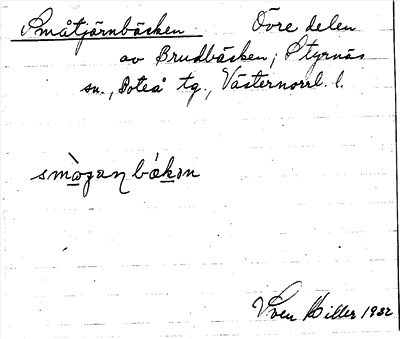 Småtjärnbäcken Övre delen
av Brudbäcken; Styrnäs
sn., Boteå tg., Västernorrl. l.
Sven Hiller 1932